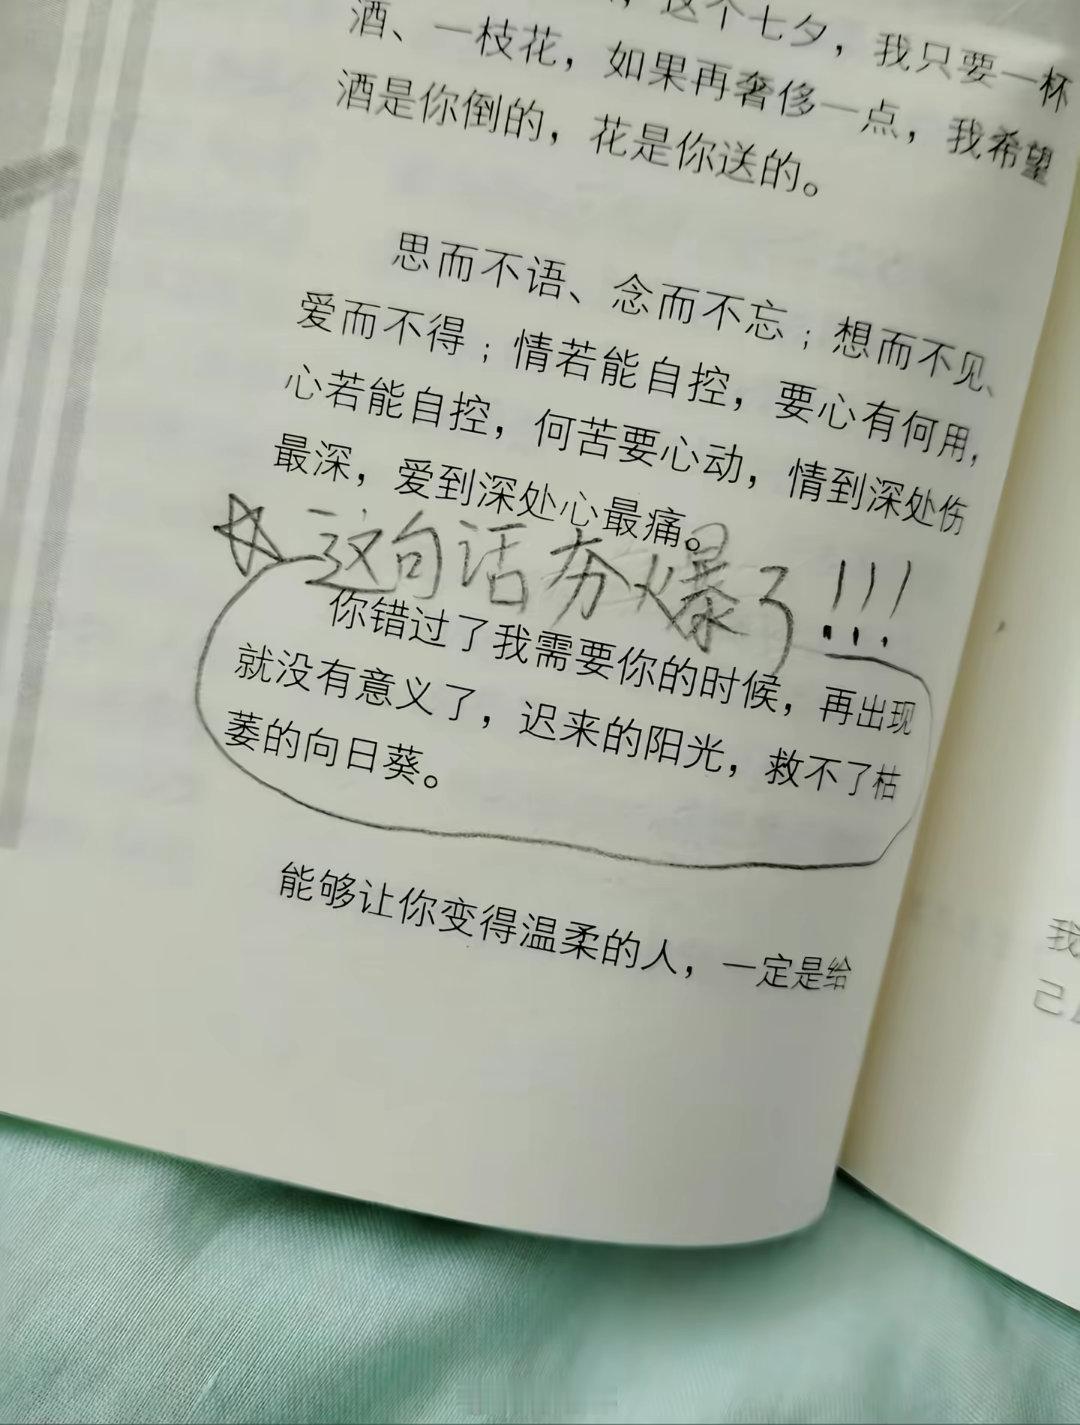 这个七夕，我只要一杯
酒、一枝花，如果再奢侈一点，我希望
酒是你倒的，花是你送的。
思而不语、念而不忘；想而不见、
爱而不得；情若能自控，要心有何用，
心若能自控，何苦要心动，情到深处伤
最深，爱到深处心最痛。
这句话夯爆了!!!
你错过了我需要你的时候，再出现
就没有意义了，迟来的阳光，救不了枯
萎的向日葵。
能够让你变得温柔的人，一定是给
我
己